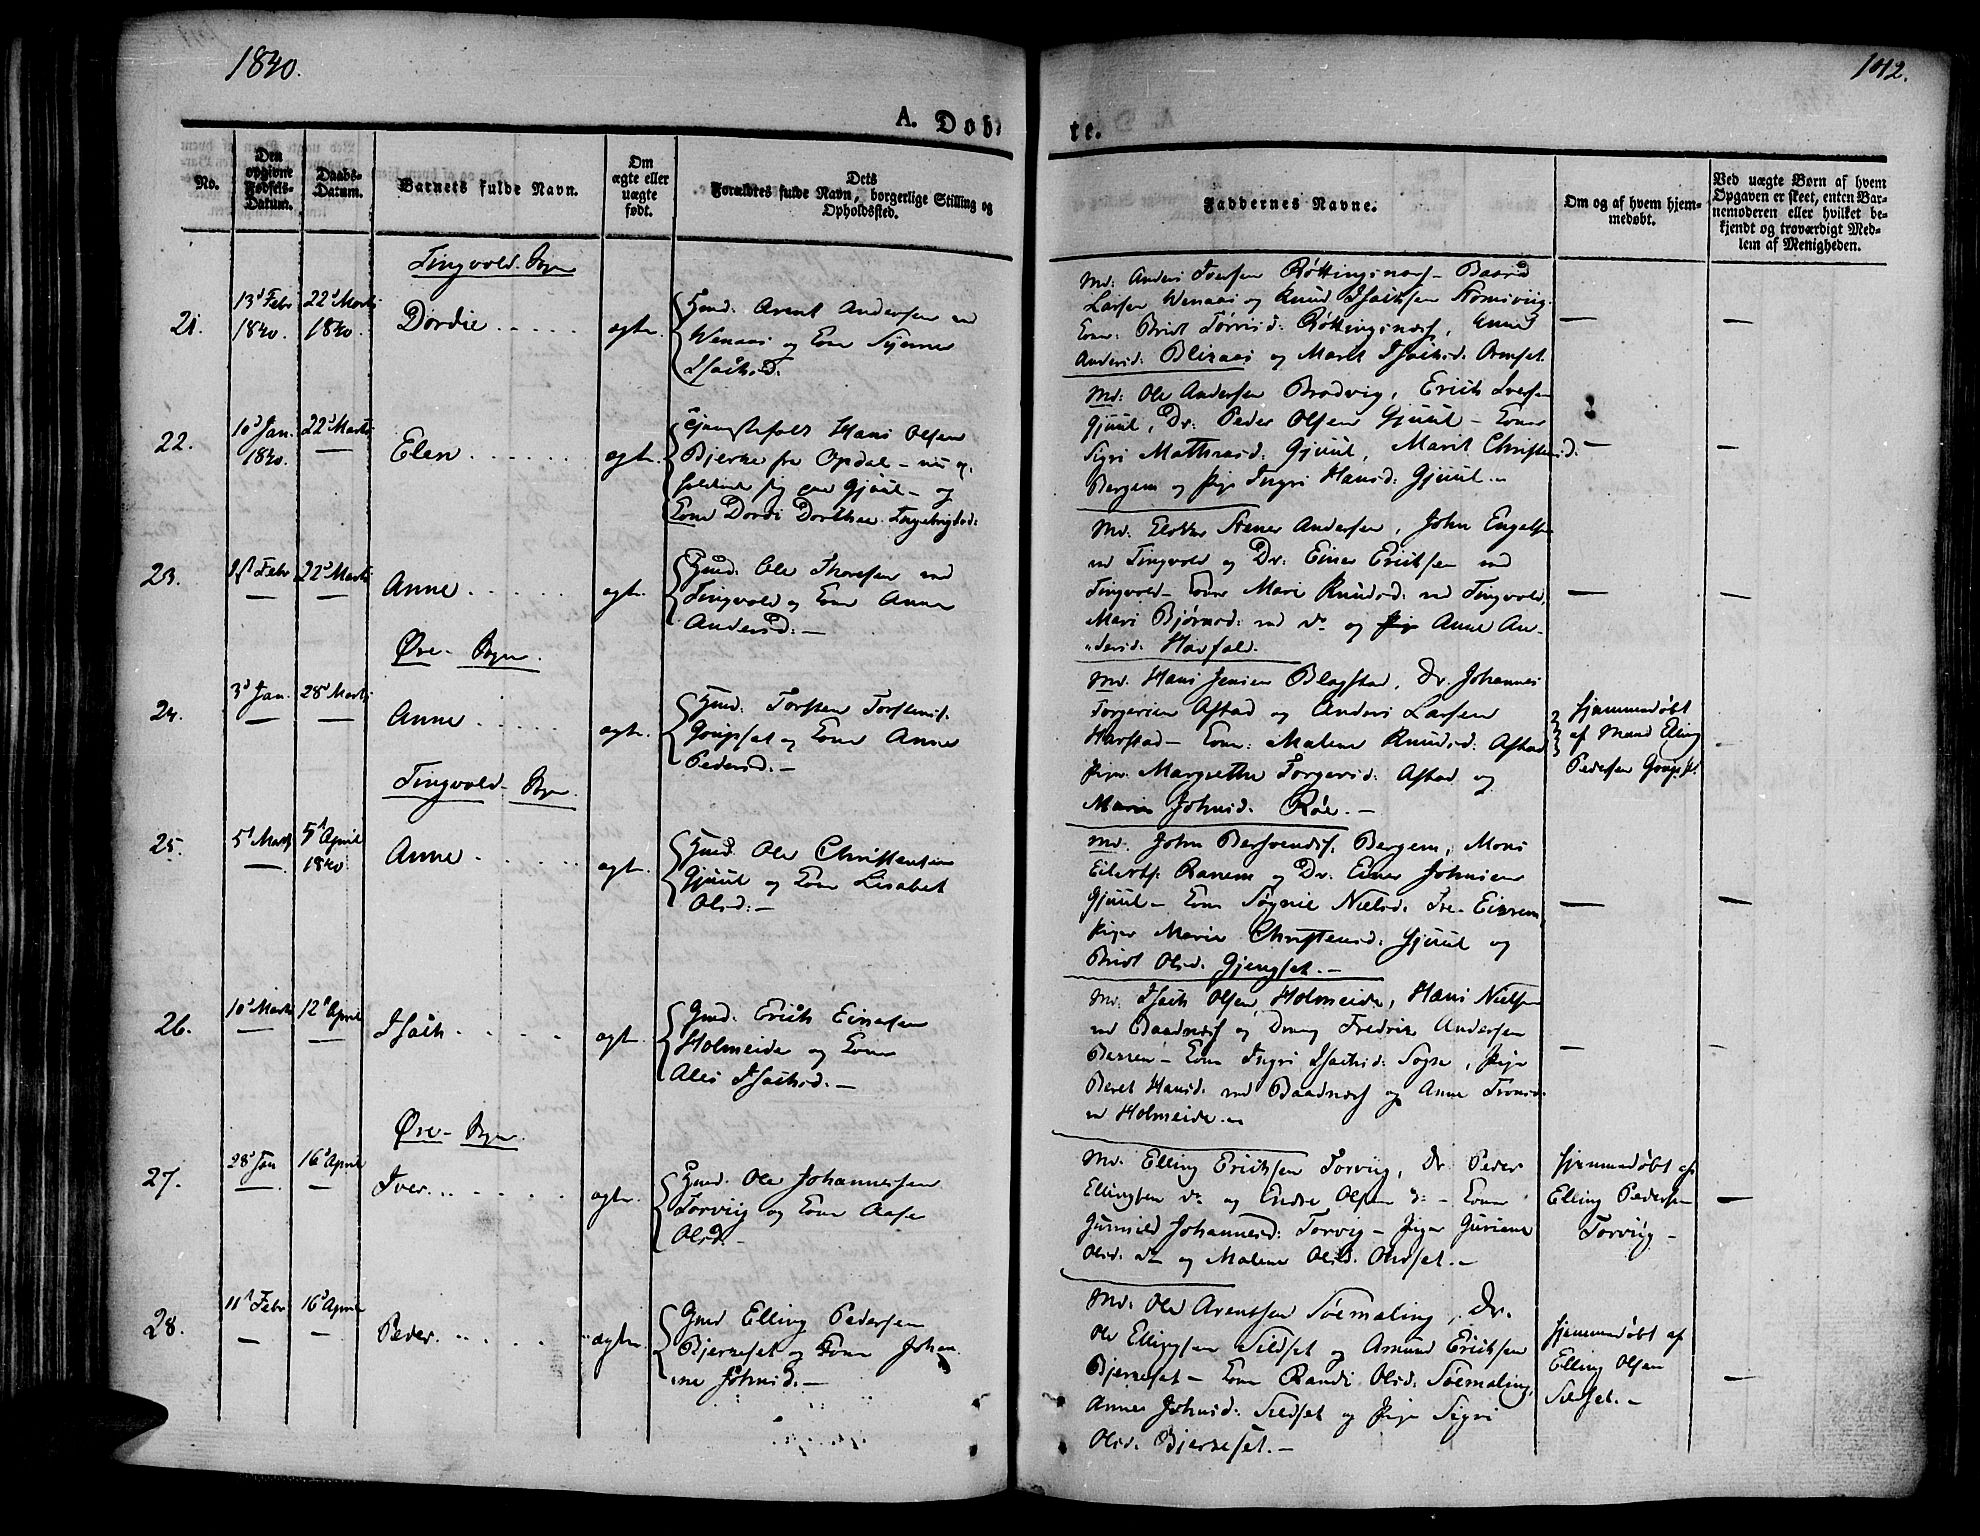 1840.
142.
A. Døb-
te.
No.
Den
opgivne
Fødsels-
Datum.
Daabs-
Datum.
Barnets fulde Navn.
Om
ægte eller
uægte
født.
Dets
Forældres fulde Navn, borgerlige Stilling og
Opholdssted.
Faddernes Navne.
Om og af hvem hjem-
medøbt.
Ved uægte Børn af hvem
Opgaven er skeet, enten Bar-
nemoderen eller hvilket be-
kjendt og troværdigt Med-
lem af Menigheden.
Tingvold. Sogn
21.
13d Febr
1840.
22d Marti
1840.
Dordie
ægte.
Gmd. Arent Andersen
Wenaas og Kone
Isachsd.
Md. Anders Iversen Røttingsnæs - Baard
Larsen Wenaas og Knud Isachsen
Kone: Bridt Røttingsnæs, Anne
Andersd: og Marit Isachsd.
—
—
22.
10d Jan.
1840.
22d Marti
—
Elen
ægte.
Hans Olsen
Bjerke fra Opdal - nu
sig paa Gjuul - og
Kone Dordi Dorthea Ingebrigtsd:
Md: Ole Andersen Brodvig, Erich Iversen
Gjuul, Dr. Peder Olsen Gjuul - Koner
Sigri Gjuul, Marit Christensd:
Bergem og Pige Ingri Hansd: Gjuul.
—
—
23.
Febr
—
22d Marti
—
Anne
ægte.
Gmd. Ole Thoresen ved
Tingvold og Kone Anne
Andersd: —
Md. Andersen, John
ved Tingvold og Dr. Einer Erichsen ved
Tingvold - Koner Mari Knudsd: ved Tingvold,
Mari Bjørnsd: ved do og Pige Anne An-
dersd:
—
—
Øre - Sogn.
24.
3d Jan.
—
28d Marti
—
Anne
ægte.
Gmd. Torsten Torstens.
og Kone Anne
Pedersd. —
Md. Hans Jensen Blagstad, Dr. Johannes
Torgersen Astad og Anders Larsen
Harstad - Kone: Malene Knudsd: Astad
Piger Margrethe Torgersd: Astad og
Johnsd. Røe. —
hjemmedøbt
af Mand Elling
Pedersen
Tingvold - Sogn.
25.
5d Marti
—
5d April
1840.
Anne
ægte.
Gmd. Ole Christensen
Gjuul og Kone Lisabet
Olsd: —
Md. John Bergem, Mons
Ranem og Dr. Einer Johnsen
Gjuul - Kone Nielsd.
Piger Marie Christensd. Gjuul og
Bridt Olsd. Gjengset. —
—
—
26.
10d Marti
—
12d April
—
Isach
ægte.
Gmd. Erich Einersen
Holmeide og Kone
Isachsd. —
Md. Isach Olsen Holmeide, Hans Nielsen
ved Baadnæs og Dreng Fredrik Andersen
- Kone Ingri Isachsd: Sogge, Pige
Beret Hansd: ved Baadnæs og Anne
Holmeide.
—
—
Øre - Sogn.
27.
28d Jan
—
16d April
—
Iver
ægte.
Gmd. Ole Johannessen
Torviig og Kone Aase
Olsd. —
Md. Elling Erichsen Torviig, Dr. Peder
Ellingsen do og Endre Olsen do - Kone
Gunnild Johannesd: Torvig - Piger Guriane
Olsd. do og Malene Olsd. —
hjemmedøbt af
Elling Pedersen
Torviig —
—
28.
11d Febr
—
16d April
—
Peder
ægte.
Gmd Elling Pedersen
Bjerkeset og Kone Johan-
ne Johnsd. —
Md. Ole Arentsen Søemaling, Dr.
Ole Ellingsen Sildset og Amund Erichsen
Bjerkeset - Kone Randi Olsd. Søemaling,
Anne Johnsd: Sildset og Pige Sigri
Olsd. Bjerkeset. —
hjemmedøbt af
Elling Olsen
Sildset. —
—